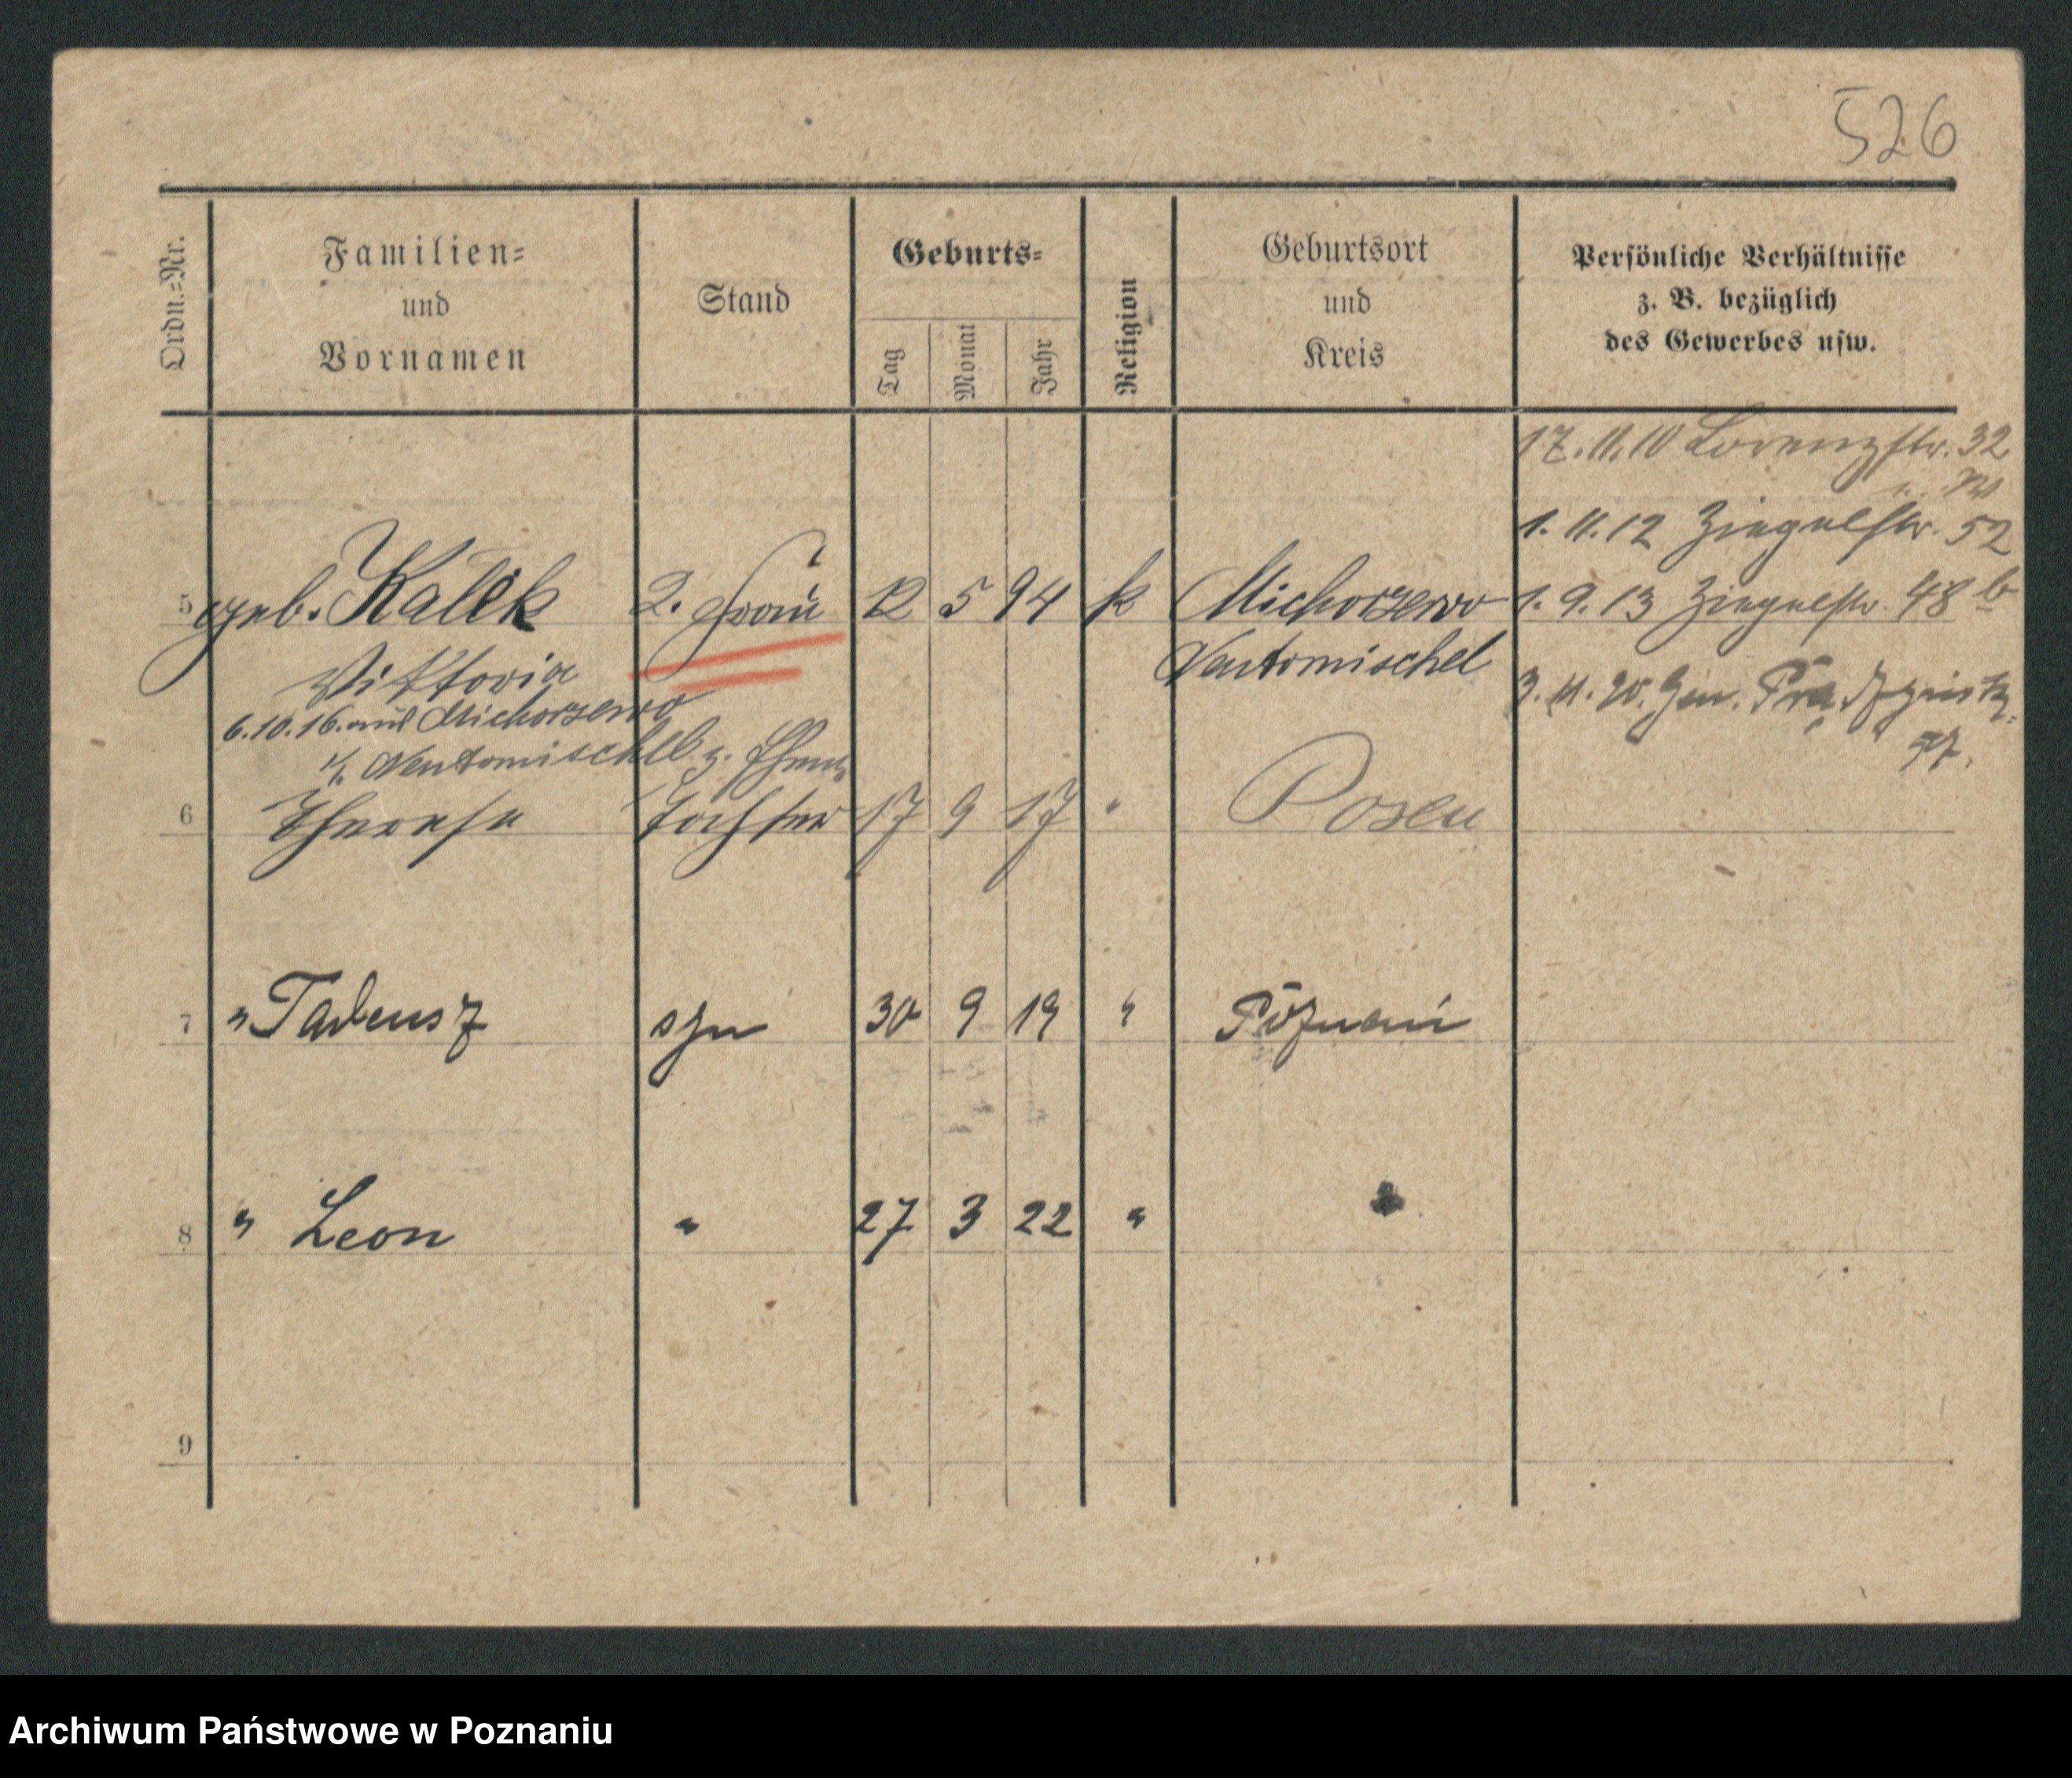 526
Ordn.=Nr.
Familien=
und
Vornamen
Stand
Geburts=
Tag
Monat
Jahr
Religion
Geburtsort
und
Kreis
Persönliche Verhältnisse
z. B. bezüglich
des Gewerbes usw.
17.11.10 Lorenzstr. 32
1.11.12 Ziegelstr. 52
5 geb. Kalek 2. Frau 12 5 94 k Michorzewo 1.9.13 Ziegelstr. 48 b
Viktoria Neutomischel
6.10.16. aus Michorzewo
Neutomischel z. Ehem.
3.11.20. Gen. Prądzyńsk.
37.
6 Therese Tochter 17 9 17 " Posen
7 " Tadeusz syn 30 9 19 " Poznań
8 " Leon " 27 3 22 "
9
Archiwum Państwowe w Poznaniu